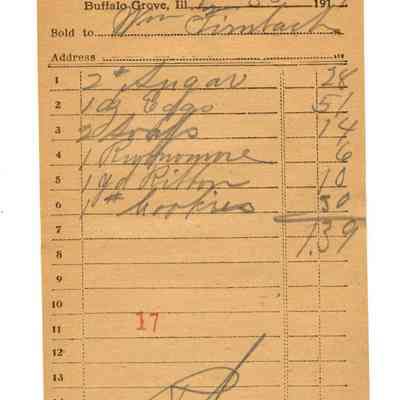 Buffalo Grove, Ill. 191
Sold to Wm
Address
1 2# Sugar 28
2 1 dz Eggs 51
3 2 Soaps 14
4 1 6
5 1 yd Ribbon 10
6 1# Cookies 30
7 1.39
8
9
10
11 17
12
13